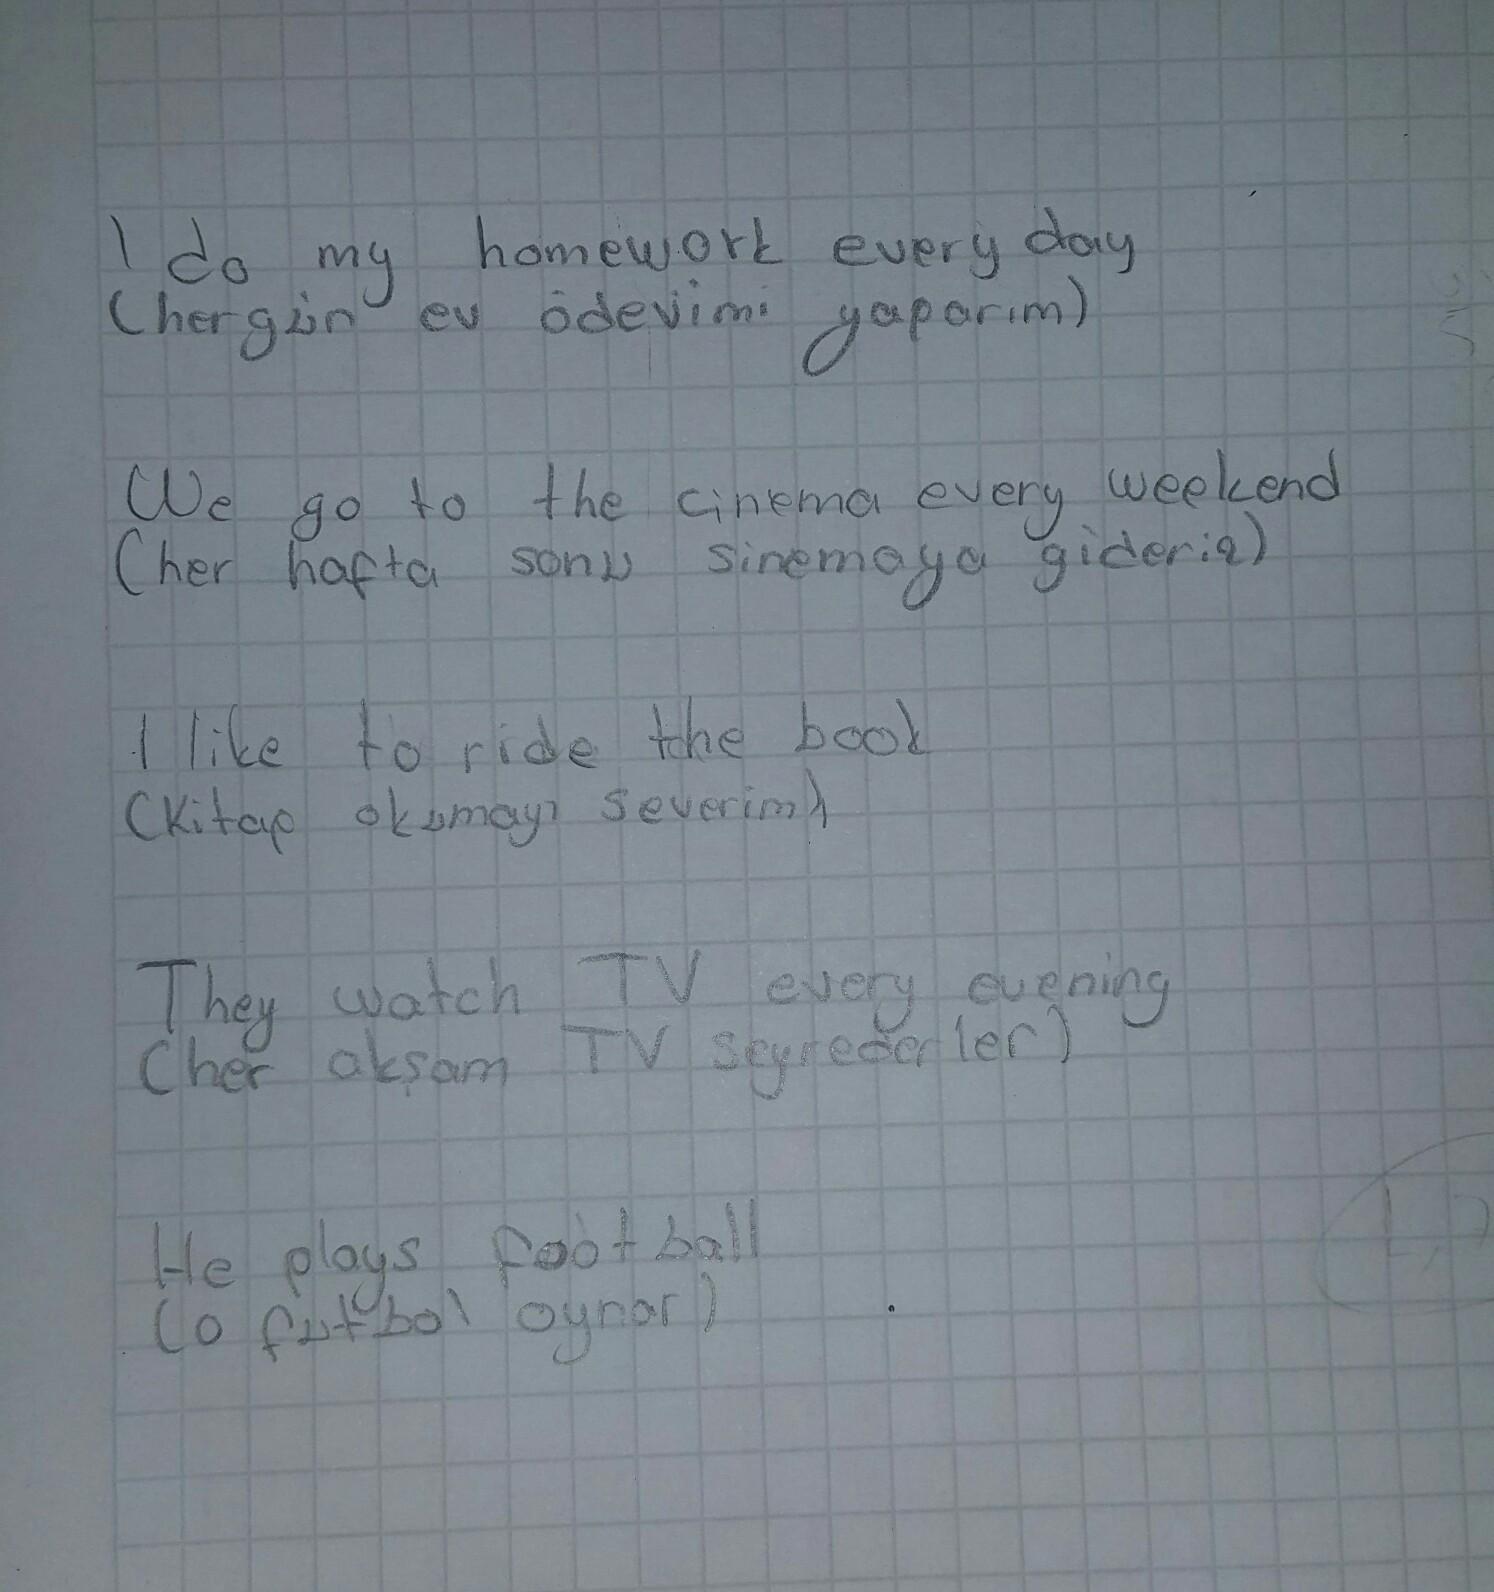 I do my homework every day
(hergün ev ödevimi yaparım)
We go to the cinema every weekend
(her hafta sonu sinemaya gideriz)
I like to ride the book
(Kitap okumayı severim)
They watch TV every evening
(her akşam TV seyrederler)
He plays football
(o futbol oynar)